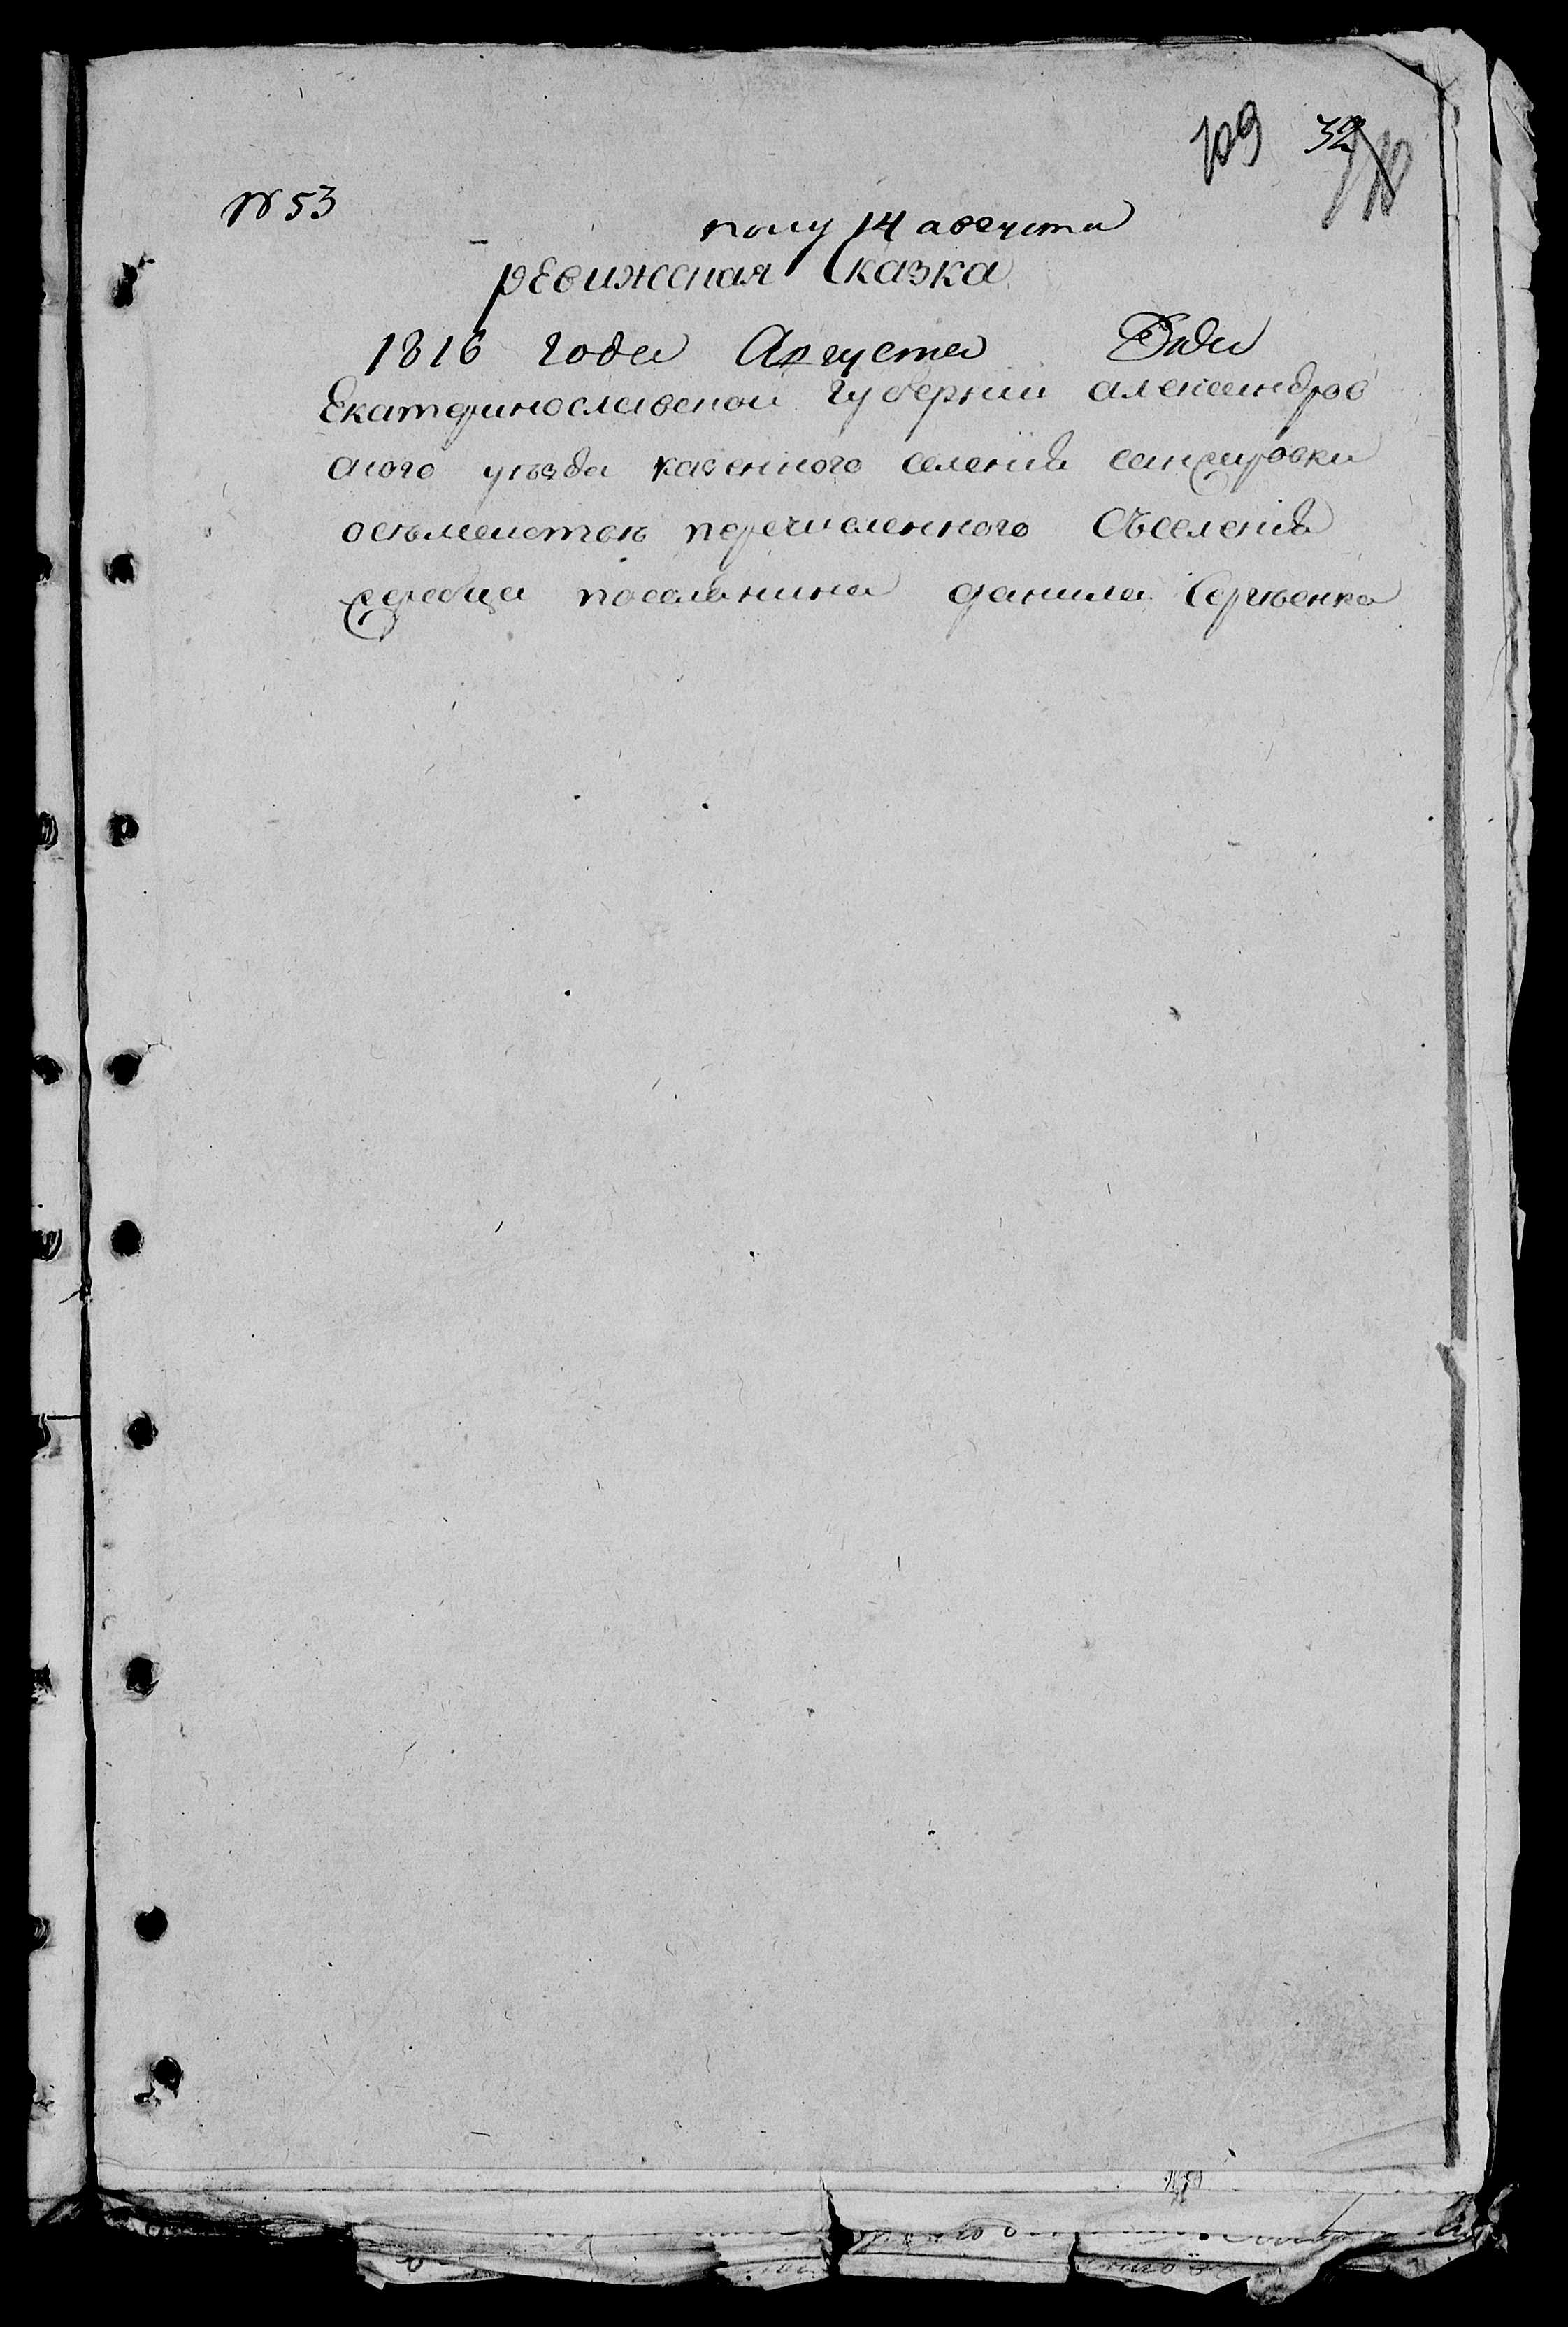 109 32
№ 53
полу 14 августа
ревижская Сказка
1816 года Августа дня
Екатеринославской губернии александров
ского уъзда казенного селения
перечисленного Съселения
поселянина данила Сергъенка